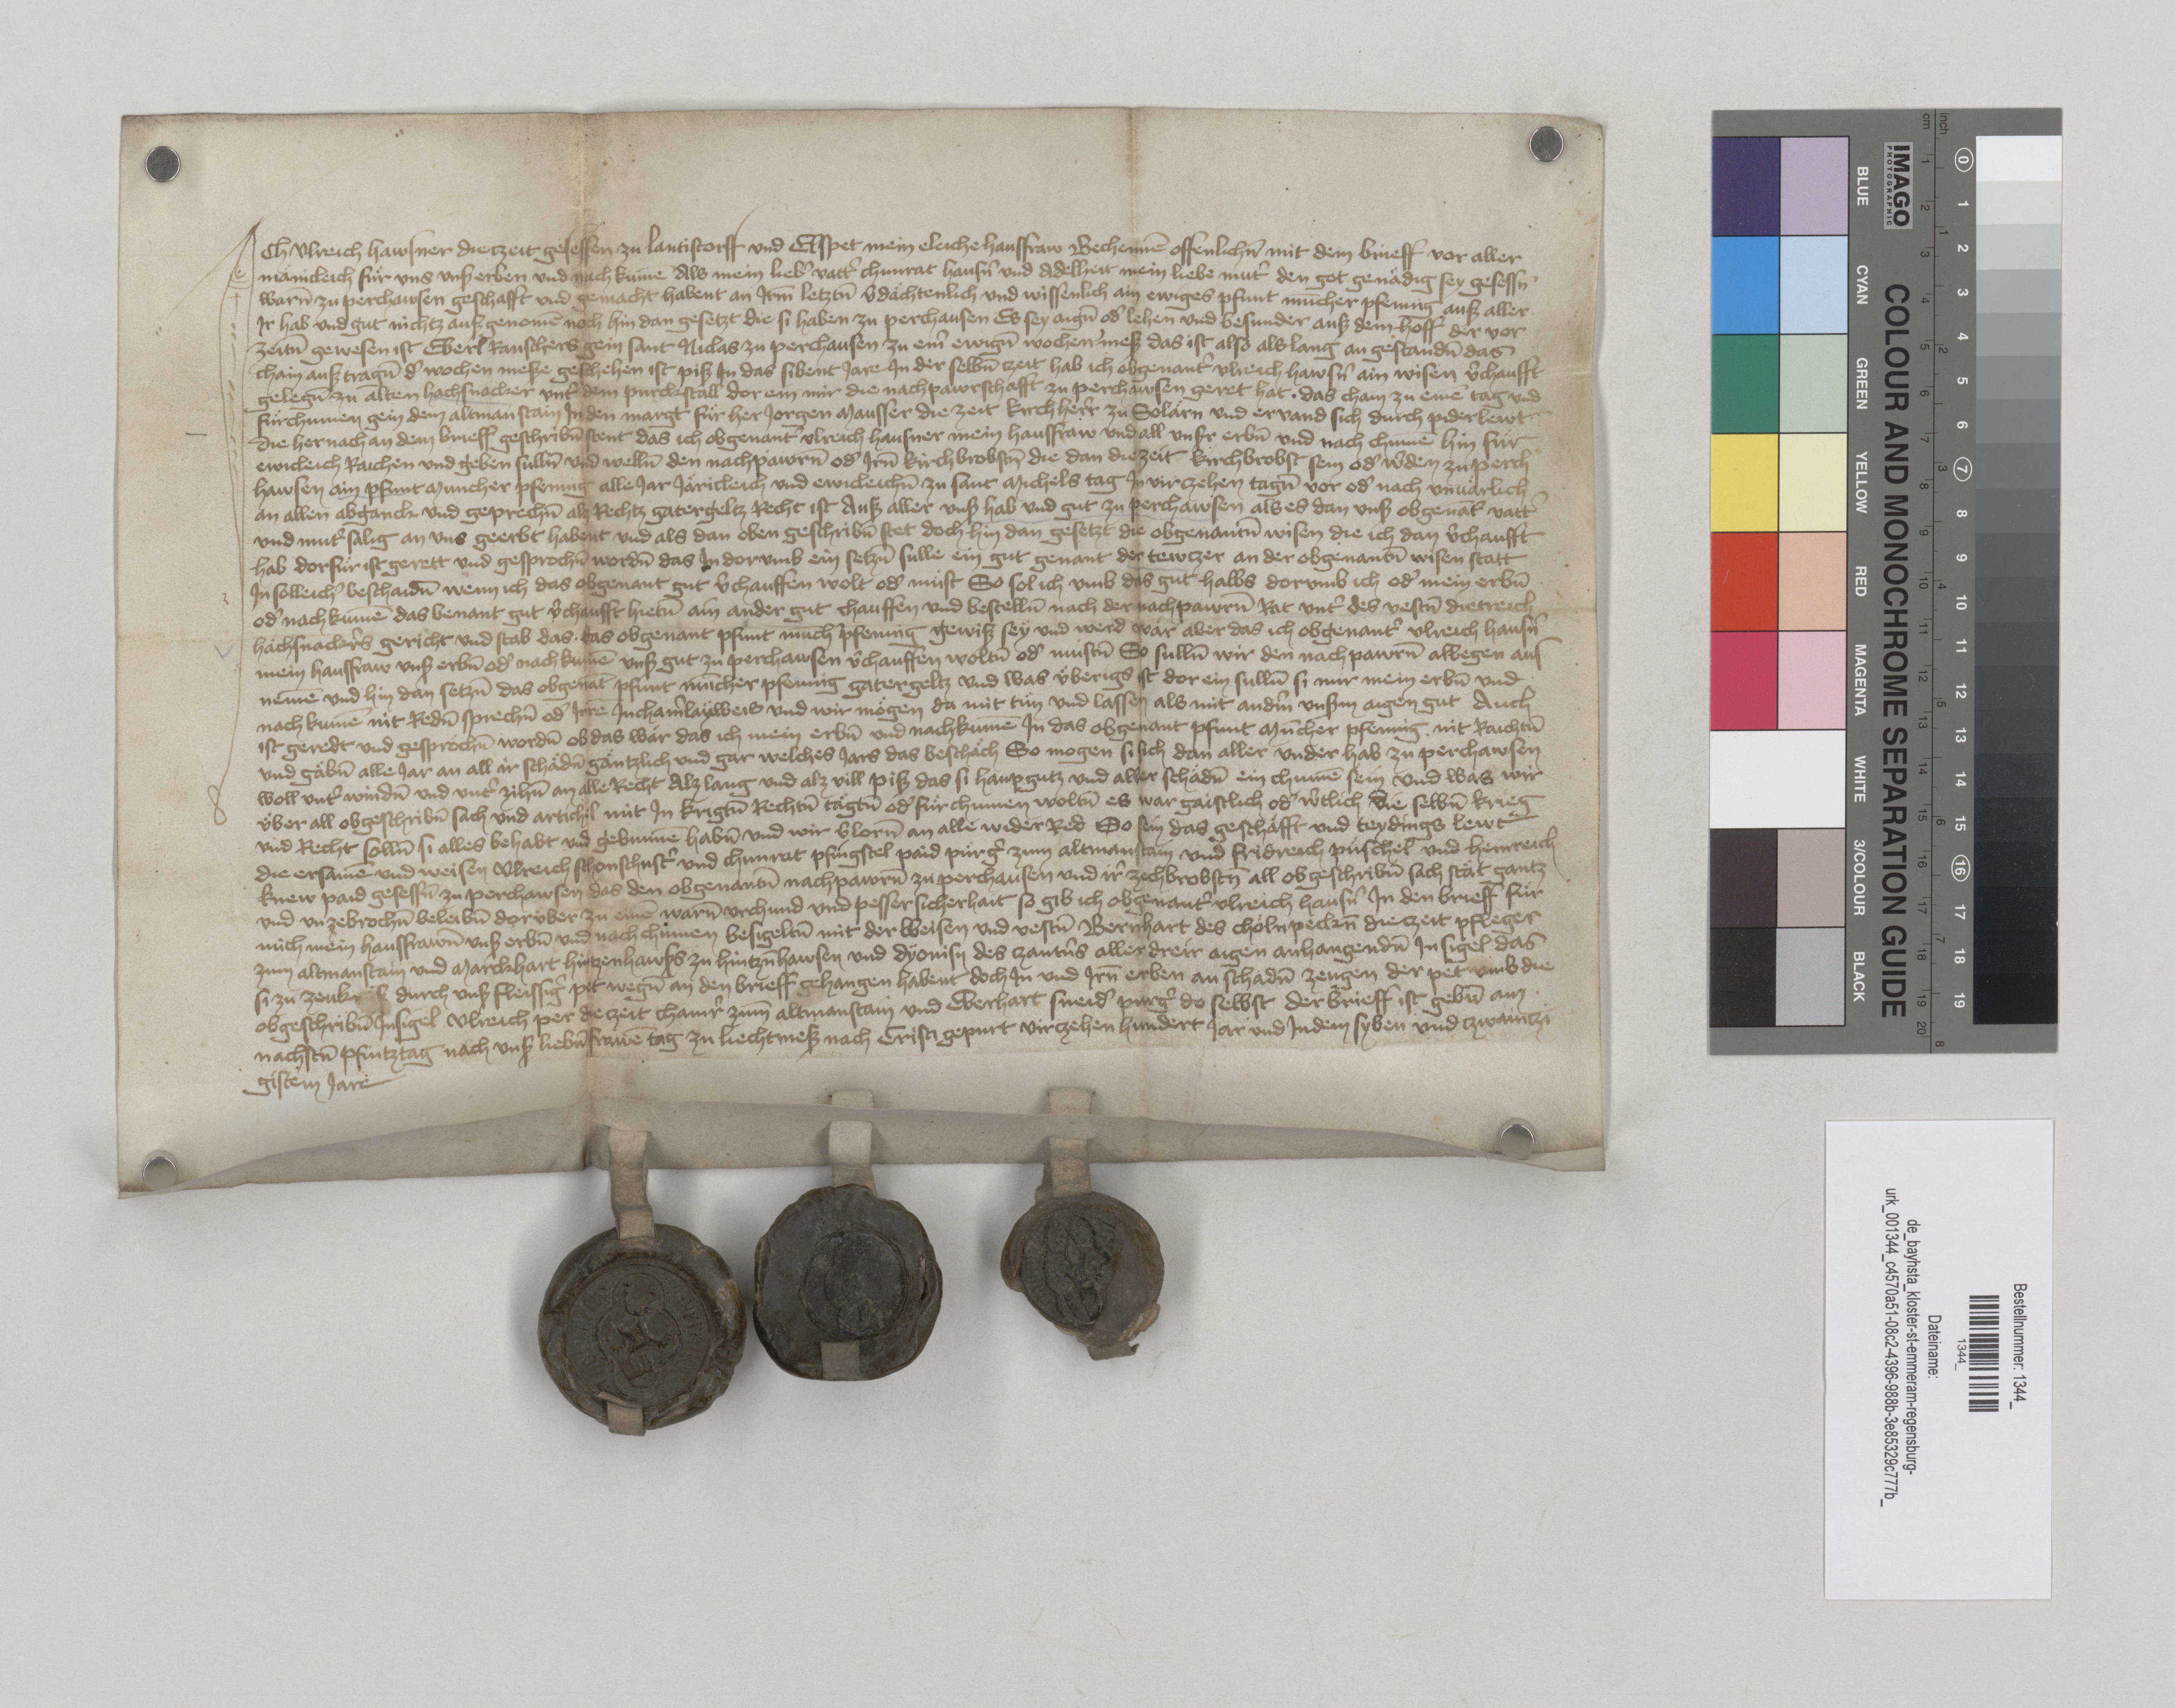 Ich Ulreich hawsner die zeit gesessen zu lantistorff und Elspet mein eleiche hausfraw Bechennē offenlichn̄ mit dem brieff vor aller
mänicleich für uns unß erben und nach kume Als mein lieb' vatt' chunrat hausn' und Adelheit mein liebe mut' den got genädig sey gesessn̄
warn̄ zu perchawsen geschafft und gemacht habent an Irm̄ letztn̄ v'dächtenlich und wissenlich ain ewiges pfunt mūcher pfening auß aller
Ir hab und gut nichtz auß genomē noch hin dan gesetzt die si haben zu perchausen Es sey aign̄ od' lehen und besunder auß dem hoff der vor
zeitn̄ gewesen ist Eberl Rauschers gein sant Niclas zu perchausen zu ein' ewign̄ wochen meß das ist also als lang an gestandn̄ das
chain auß tragn̄ d' wochen meße geschehen ist piß In das sibent Jare In der selbn̄ czeit hab ich obgenant' ulreich hawsn' ain wisen v'chaufft
gelegn̄ zu alten hachsnacker unt' dem purckstall dor ein mir die nachpawrschafft zu perchawsen geret hat · das cham zu einē tag und
fürchumen gein dem altmanstain In den margt für her Jorgen Mausser die zeit kirch herr zu Solärn und ervand sich durch piderlewt
die hernach an dem brieff geschribn̄ stent das ich obgenant' ulreich hausner mein hausfraw und all unser erbn̄ und nach chumē hin für
ewicleich Raichen und geben sulln̄ und welln̄ den nachpawrn̄ od' Irn̄ kirchbrobstn̄ die dan die zeit kirchbrobst sein od' w'den zu perch
hawsen ain pfunt Muncher pfening alle Jar Järicleich und ewicleichn̄ zu sant Michels tag In virczehen tagn̄ vor od' nach unuärlich
an allen abganck und geprechn̄ als Rechtz gatergeltz Recht ist Auß aller unß hab und gut zu perchawsen als es dan unß obgenāt vatt'
und mut' sälig an uns geerbt habent und als dan oben geschribn̄ stet doch hin dan gesetzt die obgenantn̄ wisen die ich dan v'chaufft
hab dorfür ist gerett und gesprochn̄ wordn̄ das In dorumb ein setzn̄ sulle ein gut genant der tewczer an der obgenantn̄ wisen statt
In solleich' beschaidn̄ wenn ich das obgenant gut v'chauffen wolt od' müst So sol ich umb das gut halbs dorumb ich od' mein erbn̄
od' nach kumē das benant gut v'chaufft hietn̄ ain ander gut chauffen und bestelln̄ nach der nachpawrn̄ Rat unt' des vestn̄ dietreich
hächsnäck's gericht und stab das das obgenant pfunt münch' pfening gewiß sey und werd wär aber das ich obgenant' ulreich hausn'
mein hausfraw unß erbn̄ od' nach kumē unß gut zu perchawsen v'chauffen woltn̄ od' mustn̄ So sulln̄ wir den nachpawrn̄ allwegen auß
nemē und hin dan setzn̄ das obgenāt pfunt mūcher pfening gatergeltz und was v̈berigs ist dor ein sulln̄ si mir mein erbn̄ und
nach kumē nit Redn̄ sprechn̄ od' Irre In chain'layweis und wir mögen da mit tun und lassen als mit andn̄ unßm aigen gut Auch
ist geredt und gesprochn̄ wordn̄ ob das wär das ich mein erbn̄ und nachkumē In das obgenant pfunt Mūcher pfening nit Raichtn̄
und gäbn̄ alle Jar an all ir schädn̄ gäntzlich und gar welches Jars das beschäch So mogen si sich dan aller under hab zu perchawsen
woll unt' windn̄ und unt' zihn̄ an alle Recht Alz lang und alz vill piß das si haupgutz und aller schädn̄ ein chumē sein und was wir
v̈ber all obgeschribn̄ sach und artichel mit In krigtn̄ Rechtn̄ tägtn̄ od' fürchumen woltn̄ es war gaistlich od' w'tlich die selbn̄ krieg
und Recht sölln̄ si alles behabt und gebunne habn̄ und wir v'lorn̄ an alle wider Red So sein das geschäfft und teydings lewt
die ersame und weisen Ulreich schonschust' und chunrat pfingstel paid purg' zum altmanstain und fridreich püschel und heinreich
knew paid gesessn̄ zu perchawsen das den obgenantn̄ nachpawrn̄ zu perchausen und ir' zechbrobstn̄ all obgeschribn̄ sach stät gantz
und unzebrochn̄ beleibn̄ doruber zu einē warn̄ urchund und pesser sicherhait so gib ich obgenant' ulreich hausn' In den brieff für
mich mein hausfrawn̄ unß erbn̄ und nach chumen besigeltn̄ mit der Weisen und vestn̄ Bernhart des chölnpeckn̄ die czeit pfleger
zum altmanstain und Marckhart hintzenhawsßs zu hintznhawsen und dyonisy des czantn's aller dreir aigen anhangendn̄ Insigel das
si zu durch unß fleissig' pet wegn̄ an den brieff gehangen habent doch In und Irn̄ erben an schadn̄ zeugen der pet umb die
obgeschribn̄ Insigel Ulreich per die zeit cham'r zum̄ altmanstain und Eberhart sneid' purg' do selbst der brieff ist gebn̄ am
nachstn̄ pfintztag nach unß liebn̄ frawē tag zu liechtmeß nach Cristi gepurt virczehen hundert Jar und In dem syben und czwainczi
gistem Jare
IMAGO
PHOTOGRAPHIC
COLOUR AND MONOCHROME SEPARATION GUIDE
BLUE CYAN GREEN YELLOW RED MAGENTA WHITE 3/COLOUR BLACK
cm 1 2 3 4 5 6 7 8 9 10 11 12 13 14 15 16 17 18 19 20
inch 1 2 3 4 5 6 7 8
0 1 2 3 4 5 6 7 8 9 10 11 12 13 14 15 16 17 18 19
Bestellnummer: 1344_
1344_
Dateiname:
de_bayhsta_kloster-st-emmeram-regensburg-
urk_001344_c4570a51-08c2-4396-988b-3e85329c777b_